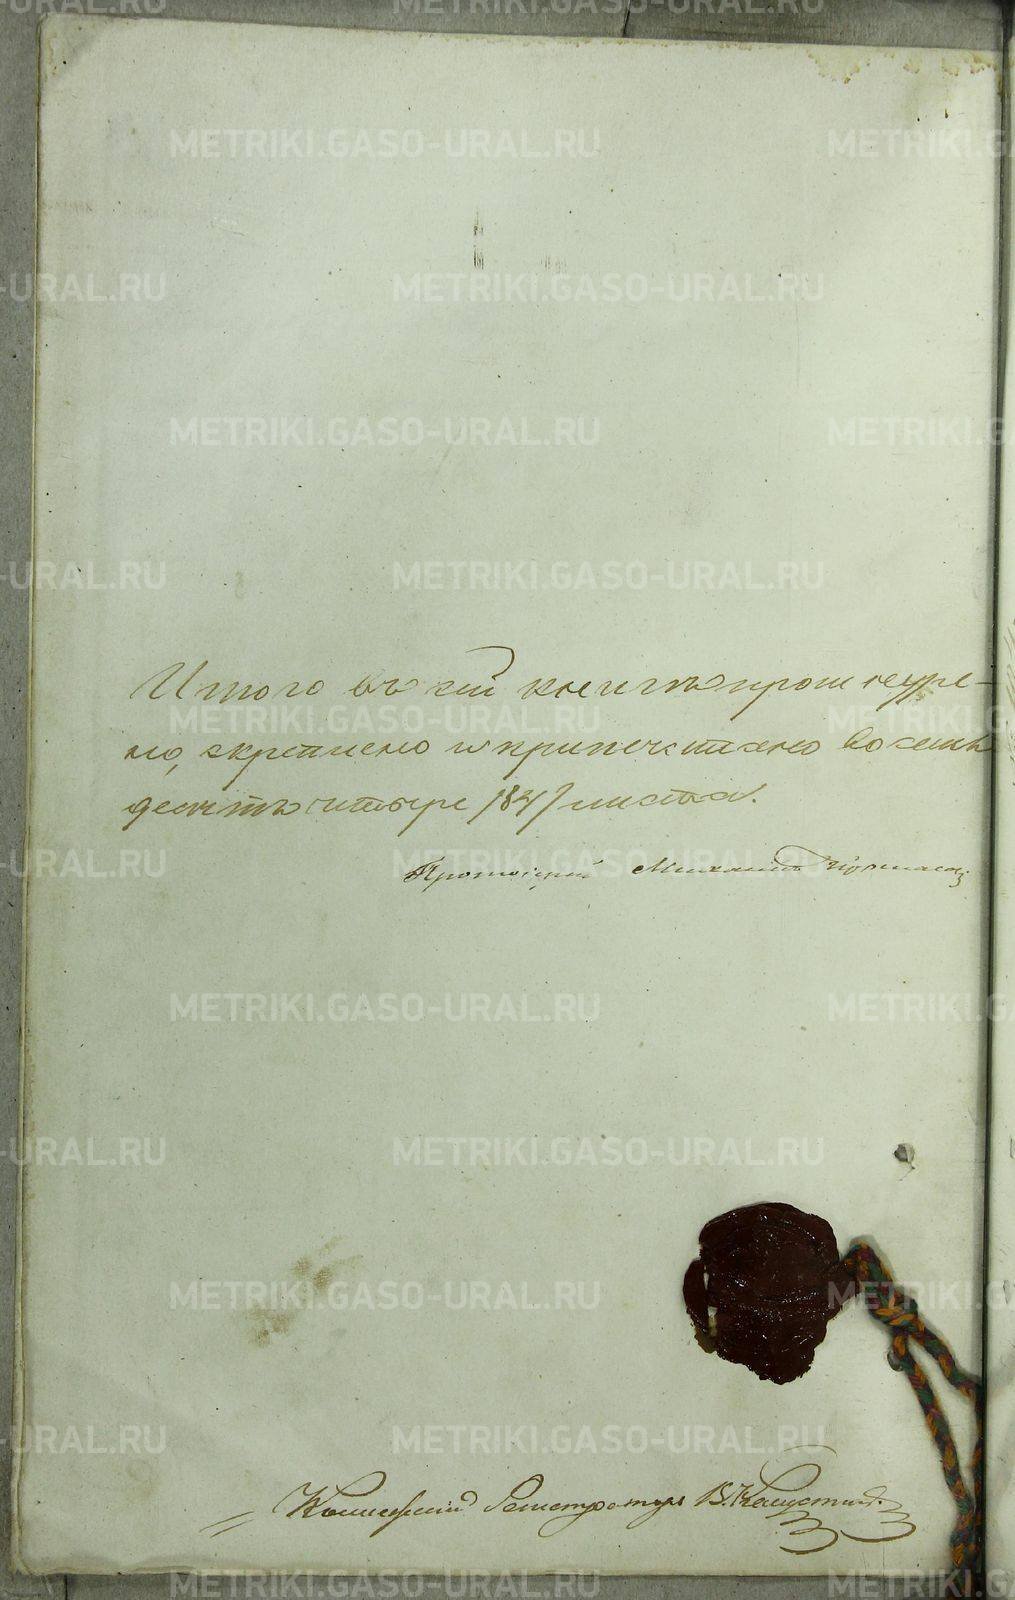 METRIKI.GASO-URAL.RU
Итого въ сей книгѣ прошнуре-
но, скреплено и припечатано восемь
десятъ четыре /84/ листа.
Протоіерей Михаилъ
Коллежскій Регистраторъ В. Капустинъ